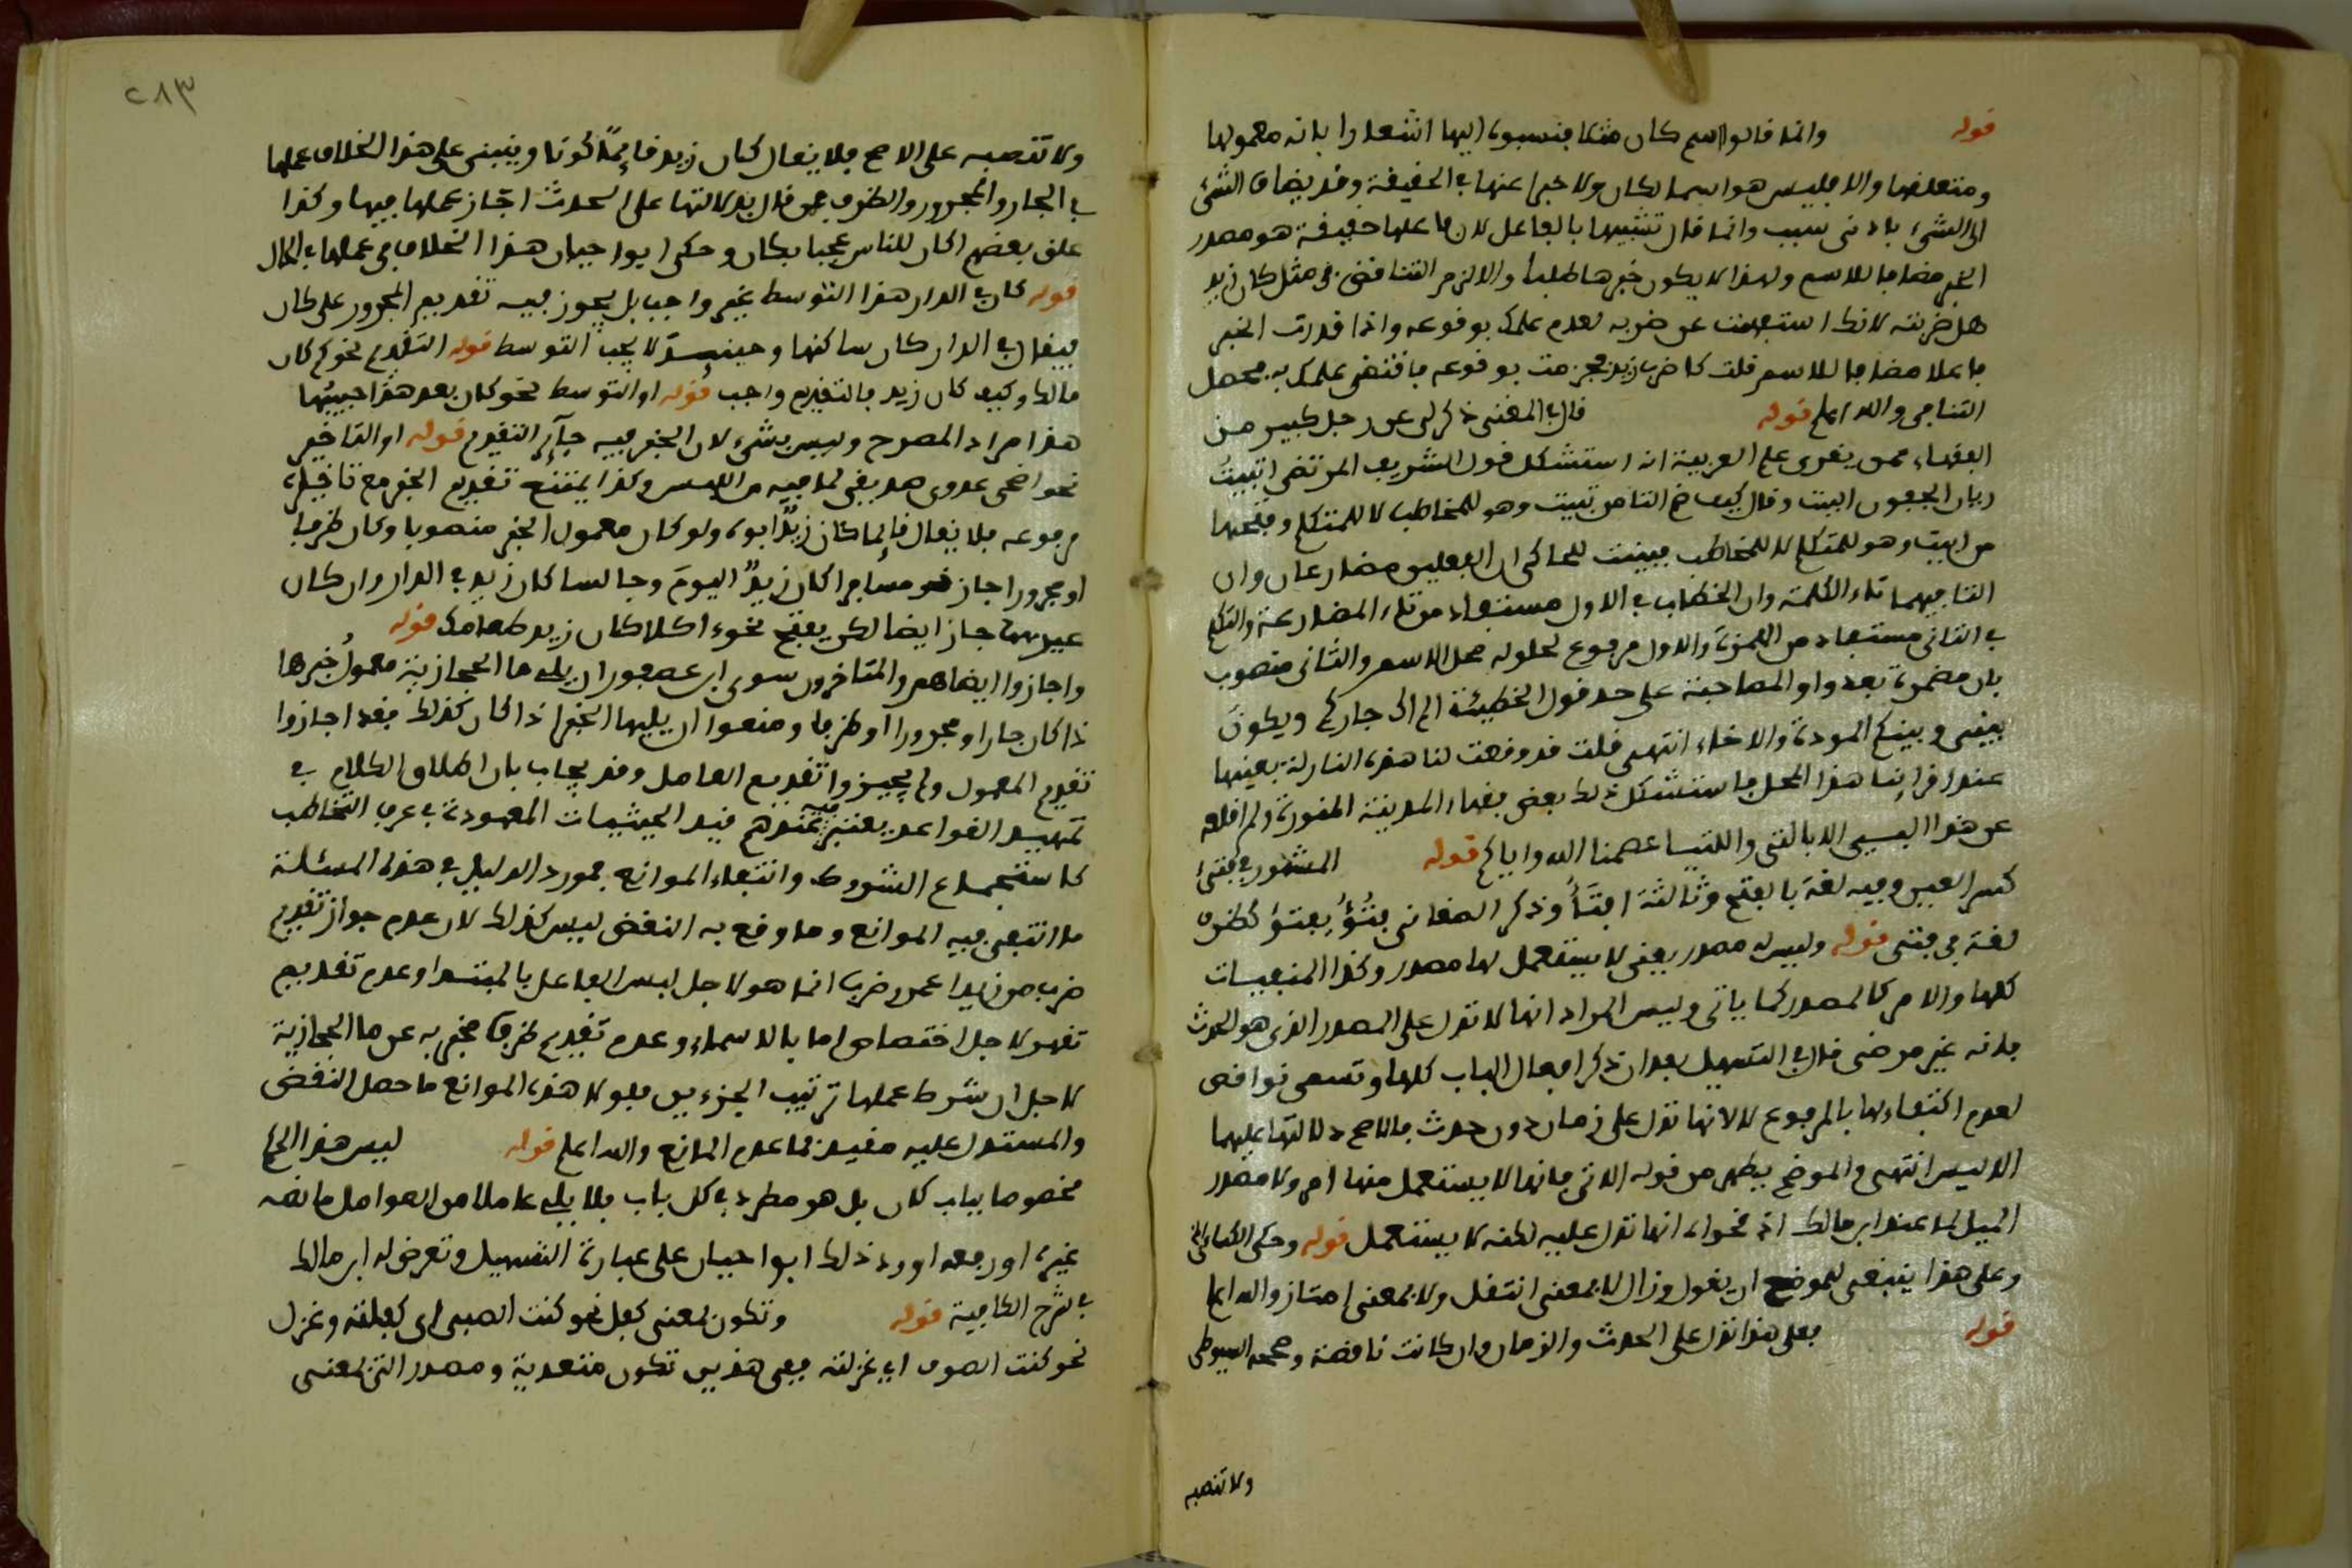 قوله وانما قالوا اسم كان مثلا فنسبوه اليها اشعارا بانه معمولها
ومتعلقها والا فليس هو اسما لكان ولا خبرا عنها في الحقيقة وقد يضاف الشيء
الى الشيء بادنى سبب وانما قال تشبيها بالفاعل لان فاعلها حقيقة هو مصدر
الخبر مضافا للاسم ولهذا لا يكون خبرها طلبا والا لزم التناقض في مثل كان زيد
هل ضربته لانك استفهمت عن ضربه لعدم علمك بوقوعه واذا قدرت الخبر
فاعلا مضافا للاسم قلت كان ضرب زيد فجزمت بوقوعه فاقتضى علمك به فحصل
التنافي والله اعلم قوله قال في المغني ذكر لي عن رجل كبير من
الفقهاء ممن يقرئ علم العربية انه استشكل قول الشريف الرضي اتبيت
ريان الجفون البيت وقال كيف ضم التا من تبيت وهو للمخاطب لا للمتكلم وفتحها
من ابيت وهو للمتكلم لا للمخاطب فبينت للحاكي ان الفعلين مضارعان وان
التا فيهما تاء الكلمة وان الخطاب في الاول مستفاد من تاء المضارعة والتكلم
في الثاني مستفاد من الهمزة والاول مرفوع لحلوله محل الاسم والثاني منصوب
بان مضمرة بعد واو المصاحبة على حد قول الحطيئة الم اك جاركم ويكون
بيني وبينكم المودة والاخاء انتهى قلت قد وقعت لنا هذه النازلة بعينها
عند اقرائنا هذا المحل فاستشكل ذلك بعض فقهاء المدينة المنورة ولم اقلعه
عن هذا الا بالتي واللتيا عصمنا الله واياكم قوله المشهور في فتئ
كسر العين وفيه لغة بالفتح وثالثة افتأ وذكر الصغاني فتؤ يفتؤ كظرف
لغة في فتئ قوله وليس له مصدر يعني لا يستعمل لها مصدر وكذا المنفيات
كلها والامر كالمصدر كما ياتي وليس المراد انها لا تدل على المصدر الذي هو الحدث
فانه غير مرضي قال في التسهيل بعد ان ذكر افعال الباب كلها وتسمى نواقص
لعدم اكتفائها بالمرفوع لا لانها تدل على زمان دون حدث فالاصح دلالتها عليهما
الا ليس انتهى والموضح يظهر من قوله الاتي فانها لا يستعمل منها امر ولا مصدر
الميل لما عند ابن مالك اذ فحواه انها تدل عليه لكنه لا يستعمل قوله وحكى الكسائي الخ
وعلى هذا ينبغي للموضح ان يقول وزال لا بمعنى انتقل ولا بمعنى امتاز والله اعلم
قوله فعلى هذا تدل على الحدث والزمان وان كانت ناقصة وصححه السيوطي
ولا تنصبه
٢٨٣
ولا تنصبه على الاصح فلا يقال كان زيد قائما كونا وينبني على هذا الخلاف عملها
في الجار والمجرور والظرف فمن قال بدلالتها على الحدث اجاز عملها فيها وكذا
علق بعضهم اكان للناس عجبا بكان وحكى ابو احيان هذا الخلاف في عملها في الحال
قوله كان في الدار هذا التوسط غير واجب بل يجوز فيه تقديم المجرور على كان
فيقال في الدار كان ساكنها وحينئذ لا يجب التوسط قوله التقديم نحو كم كان
مالك وكيف كان زيد فالتقديم واجب قوله او التوسط نحو كان بعل هند احبيبها
هذا مراد المصرح وليس بشيء لان الخبر فيه جائز التقديم قوله او التاخير
نحو اضحى عدوي صديقي لما فيه من اللبس وكذا يمتنع تقديم الخبر مع تاخير
مرفوعه فلا يقال قائما كان زيد ابوه ولو كان معمول الخبر منصوبا وكان ظرفا
او مجرورا جاز نحو مسافرا كان زيد اليوم وجالسا كان زيد في الدار وان كان
غيرهما جاز ايضا لكن بقبح نحو اكلا كان زيد طعامك قوله
واجازوا ايضا هم والمتاخرون سوى ابن عصفور ان يلي ما الحجازية معمول خبرها
اذا كان جارا ومجرورا او ظرفا ومنعوا ان يليها الخبر اذا كان كذلك فقد اجازوا
تقديم المعمول ولم يجيزوا تقديم العامل وقد يجاب بان اطلاق الكلام في
تمهيد القواعد يعتبر فيه عندهم قيد الحيثيات المعهودة في عرف التخاطب
كاستجماع الشروط وانتفاء الموانع فمورد الدليل في هذه المسئلة
ما انتفى فيه الموانع وما وقع به النقض ليس كذلك لان عدم جواز تقديم
ضرب من زيدا عمرو ضرب انما هو لاجل لبس الفاعل بالمبتدا وعدم تقديم
تقهر لاجل اختصاص اما بالاسماء وعدم تقديم ظرف مخبر به عن ما الحجازية
لاجل ان شرط عملها ترتيب الجزءين فلولا هذه الموانع ما حصل النقض
والمستدل عليه مقيد بما عدم المانع والله اعلم قوله ليس هذا الحكم
مخصوصا بباب كان بل هو مطرد في كل باب فلا يلي عاملا من العوامل ما نصبه
غيره او رفعه اورد ذلك ابو احيان على عبارة التسهيل وتعرض له ابن مالك
في شرح الكافية قوله وتكون بمعنى كفل نحو كنت الصبي اي كفلته وغزل
نحو كنت الصوف اي غزلته ففي هذين تكون متعدية ومصدر التي بمعنى